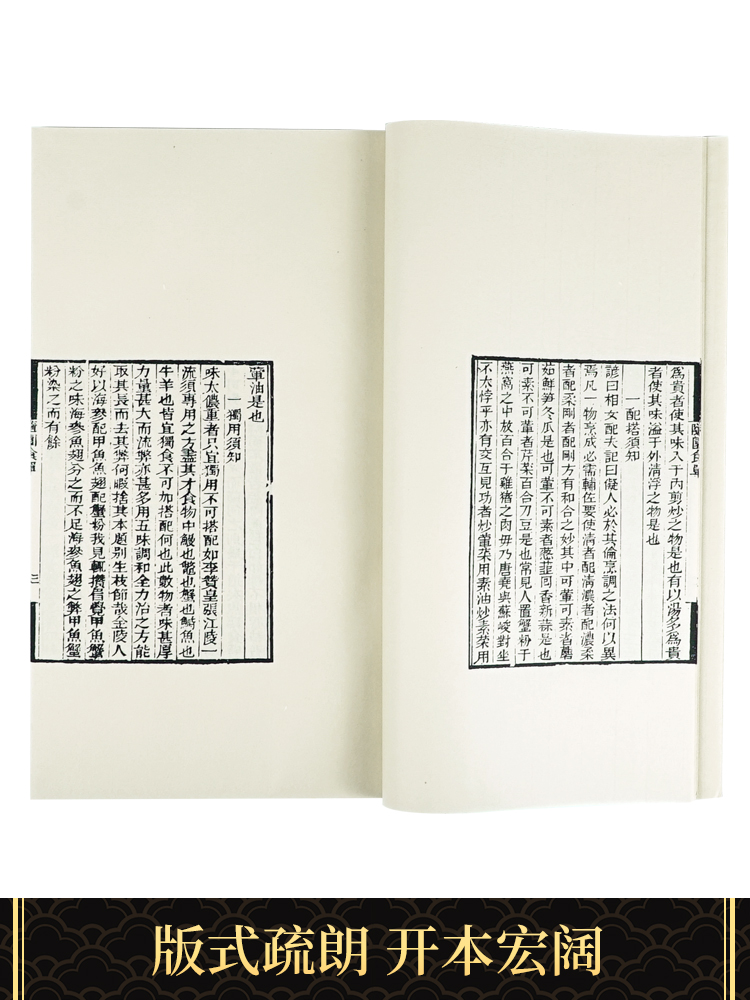 隨園食單
爲貴者使其味入于內剪炒之物是也有以湯多爲貴
者使其味溢于外清浮之物是也
一配搭須知
諺曰相女配夫記曰儗人必於其倫烹調之法何以異
焉凡一物烹成必需輔佐要使清者配清濃者配濃柔
者配柔剛者配剛方有和合之妙其中可葷可素者蘑
菇鮮笋冬瓜是也可葷不可素者葱韮茴香新蒜是也
可素不可葷者芹菜百合刀豆是也常見人置蟹粉于
燕窩之中放百合于雞猪之肉毋乃唐堯與蘇峻對坐
不太悖乎亦有交互見功者炒葷菜用素油炒素菜用
葷油是也
一獨用須知
味太濃重者只宜獨用不可搭配如李贊皇張江陵一
流須專用之方盡其才食物中鰻也鱉也蟹也鰣魚也
牛羊也皆宜獨食不可加搭配何也此數物者味甚厚
力量甚大而流弊亦甚多用五味調和全力治之方能
取其長而去其弊何暇捨其本題别生枝節哉金陵人
好以海參配甲魚魚翅配蟹粉我見輒攢眉覺甲魚蟹
粉之味海參魚翅分之而不足海參魚翅之弊甲魚蟹
粉染之而有餘
隨園食單 三
版式疏朗 开本宏阔